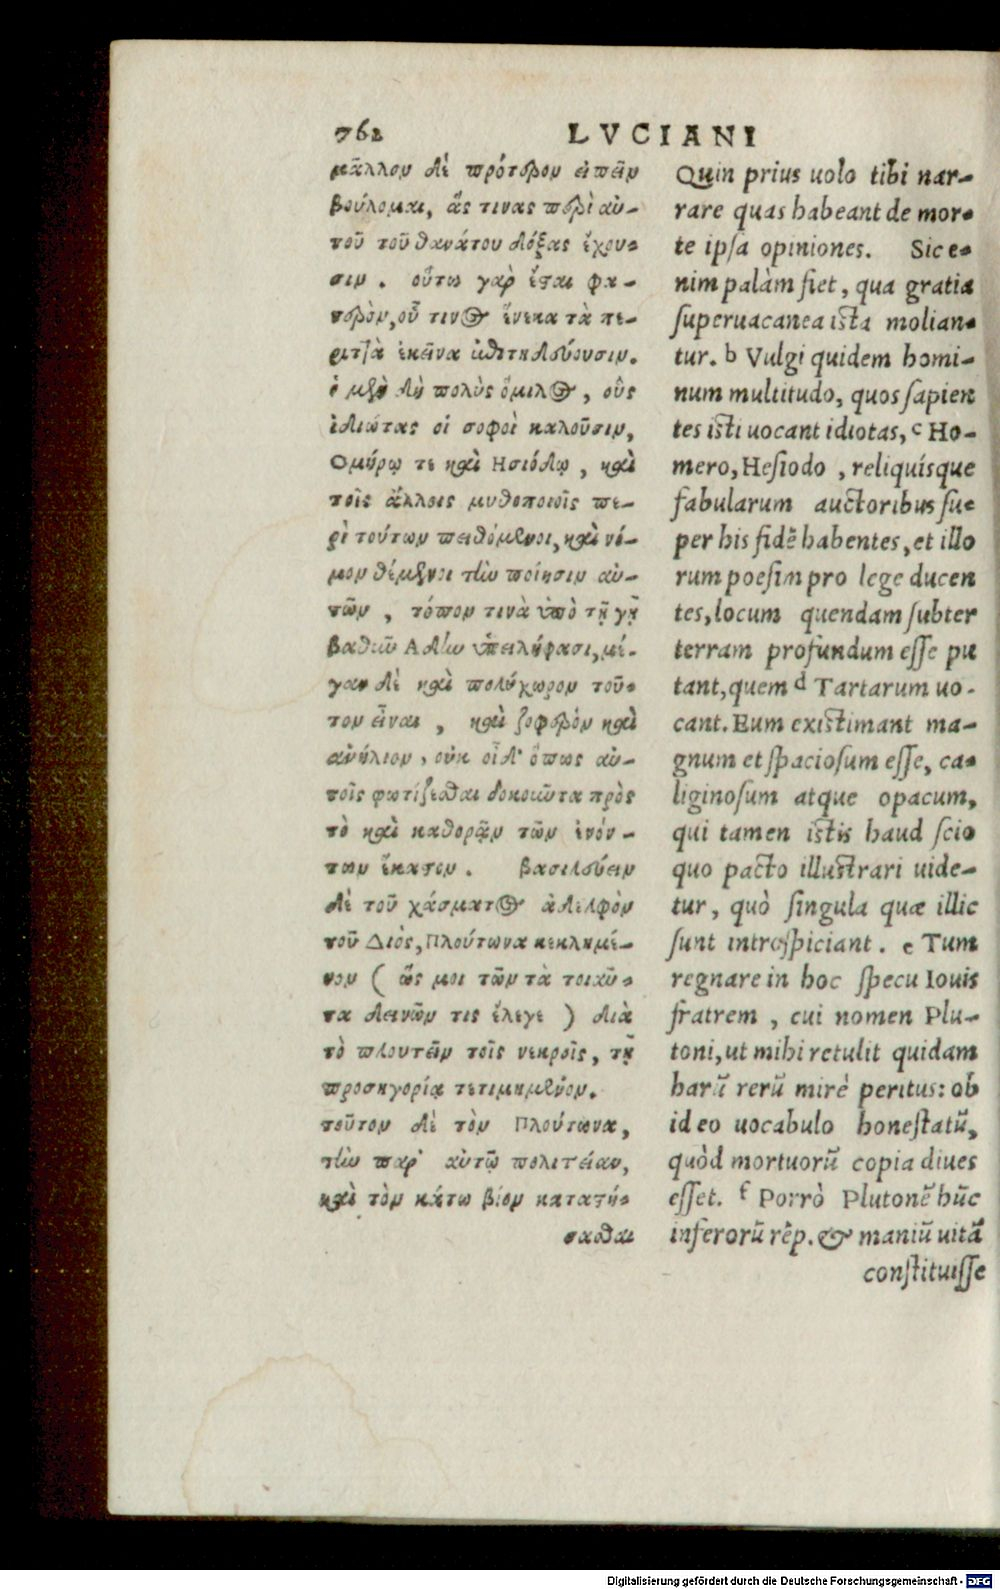 762 LVCIANI
μᾶλλον δὲ πρότερον εἰπεῖν
βούλομαι, ἅς τινας περὶ αὐ-
τοῦ τοῦ θανάτου δόξας ἔχου-
σιν. οὕτω γὰρ ἔσται φα-
νερὸν, οὗ τινος ἕνεκα τὰ πε-
ριττὰ ἐκεῖνα ἐπιτηδεύουσιν.
ὁ μὲν δὴ πολὺς ὅμιλος, οὓς
ἰδιώτας οἱ σοφοὶ καλοῦσιν,
Ομήρῳ τε καὶ Ησιόδῳ, καὶ
τοῖς ἄλλοις μυθοποιοῖς πε-
ρὶ τούτων πειθόμενοι, καὶ νό-
μον θέμενοι τὴν ποίησιν αὐ-
τῶν, τόπον τινὰ ὑπὸ τῇ γῇ
βαθὺν Αδην ὑπειλήφασι, μέ-
γαν δὲ καὶ πολύχωρον τοῦ-
τον εἶναι, καὶ ζοφερὸν καὶ
ἀνήλιον, οὐκ οἶδ' ὅπως αὐ-
τοῖς φωτίζεσθαι δοκοῦντα πρὸς
τὸ καὶ καθορᾷν τῶν ἐνόν-
των ἕκαστον. βασιλεύειν
δὲ τοῦ χάσματος ἀδελφὸν
τοῦ Διὸς, Πλούτωνα κεκλημέ-
νον (ὥς μοι τῶν τὰ τοιαῦ-
τα δεινῶν τις ἔλεγε) διὰ
τὸ πλουτεῖν τοῖς νεκροῖς, τῇ
προσηγορίᾳ τετιμημένον.
τοῦτον δὲ τὸν Πλούτωνα,
τὴν παρ' αὐτῷ πολιτείαν,
καὶ τὸν κάτω βίον καταστή-
σασθαι
Quin prius uolo tibi nar-
rare quas habeant de mor-
te ipsa opiniones. Sic e-
nim palàm fiet, qua gratia
superuacanea ista molian-
tur. b Vulgi quidem homi-
num multitudo, quos sapien
tes isti uocant idiotas, c Ho-
mero, Hesiodo, reliquísque
fabularum auctoribus su-
per his fidẽ habentes, et illo
rum poesim pro lege ducen
tes, locum quendam subter
terram profundum esse pu
tant, quem d Tartarum uo-
cant. Eum existimant ma-
gnum et spaciosum esse, ca-
liginosum atque opacum,
qui tamen istis haud scio
quo pacto illustrari uide-
tur, quò singula quæ illic
sunt introspiciant. e Tum
regnare in hoc specu Iouis
fratrem, cui nomen Plu-
toni, ut mihi retulit quidam
harũ rerũ mirè peritus: ob
id eo uocabulo honestatũ,
quòd mortuorũ copia diues
esset. f Porrò Plutonẽ hũc
inferorũ rẽp. & maniũ uitã
constituisse
Digitalisierung gefördert durch die Deutsche Forschungsgemeinschaft - DFG